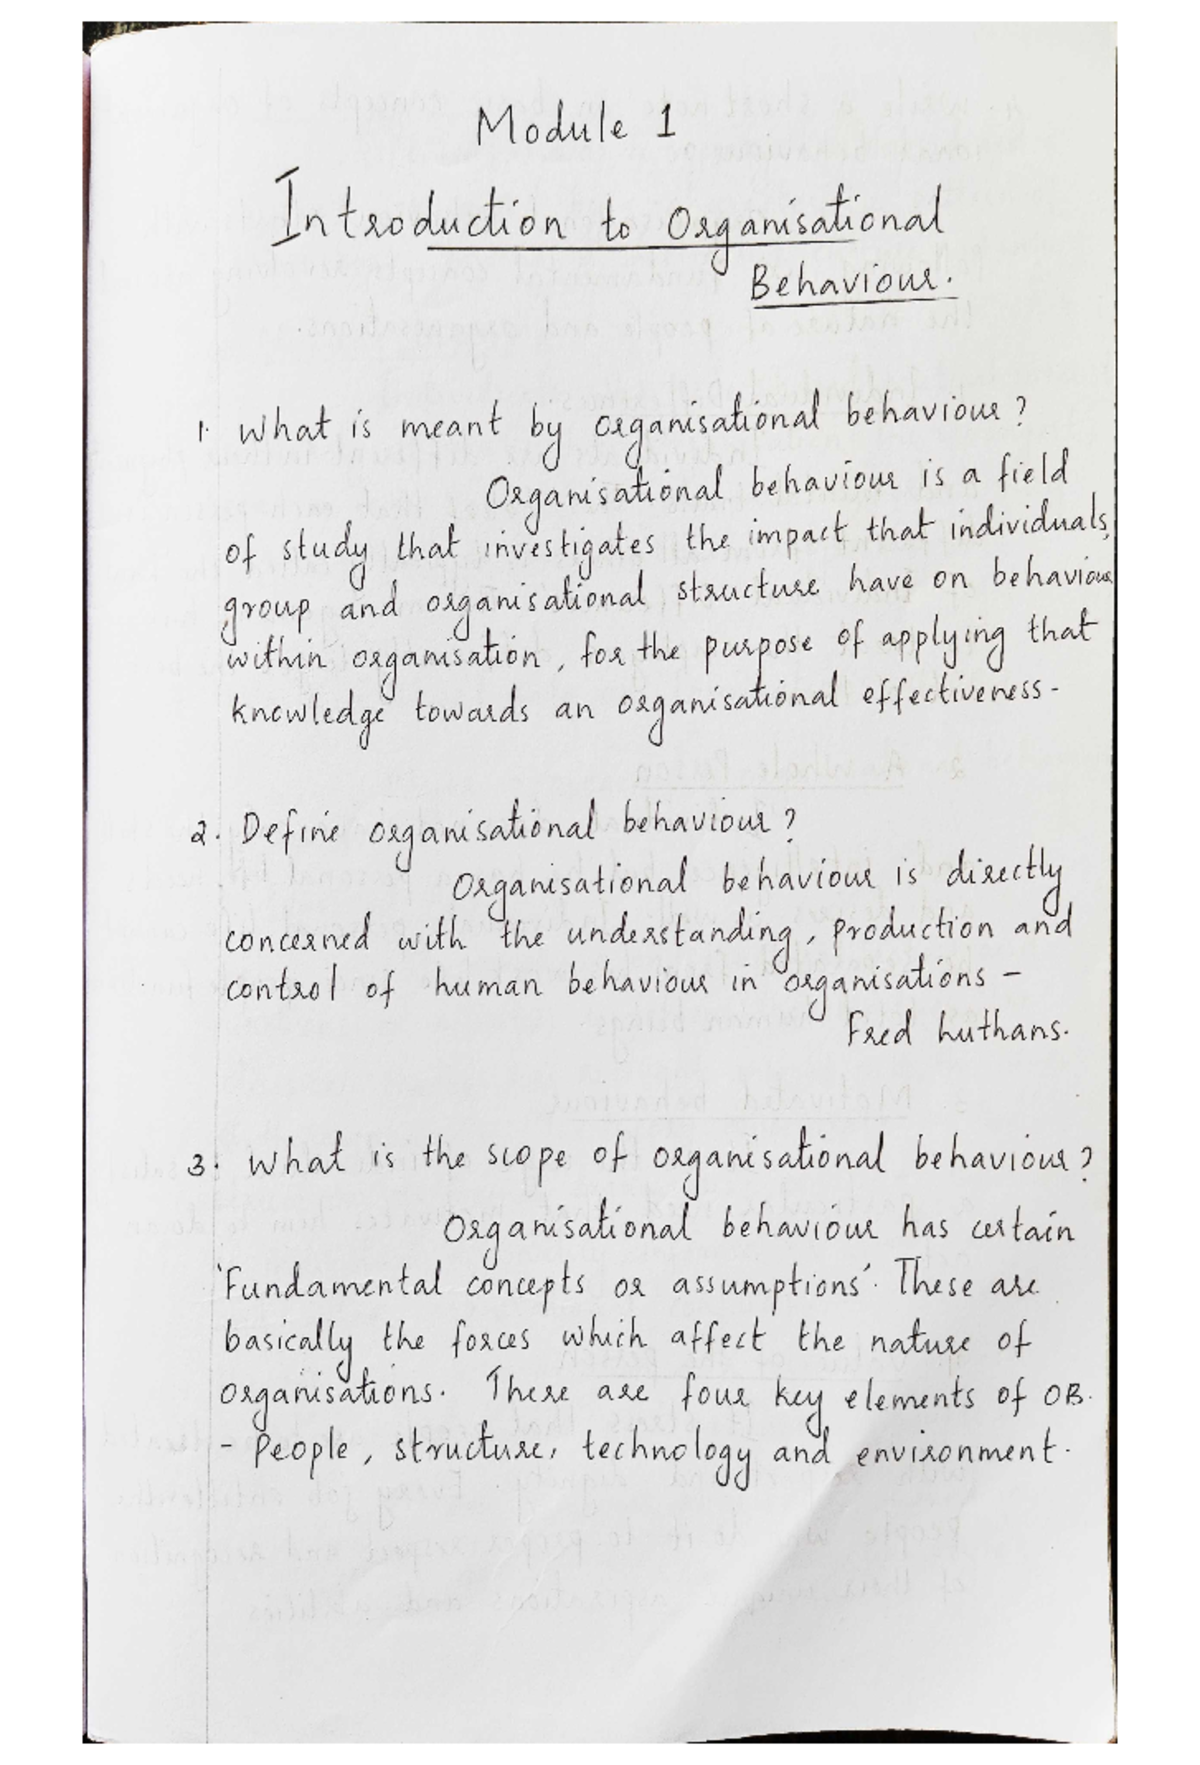 Module 1
Introduction to Organisational
Behaviour.
1. What is meant by organisational behaviour?
Organisational behaviour is a field
of study that investigates the impact that individuals,
group and organisational structure have on behaviour
within organisation, for the purpose of applying that
knowledge towards an organisational effectiveness.
2. Define organisational behaviour?
Organisational behaviour is directly
concerned with the understanding, production and
control of human behaviour in organisations -
Fred Luthans.
3. What is the scope of organisational behaviour?
Organisational behaviour has certain
'Fundamental concepts or assumptions'. These are
basically the forces which affect the nature of
organisations. There are four key elements of OB.
- People, structure, technology and environment.